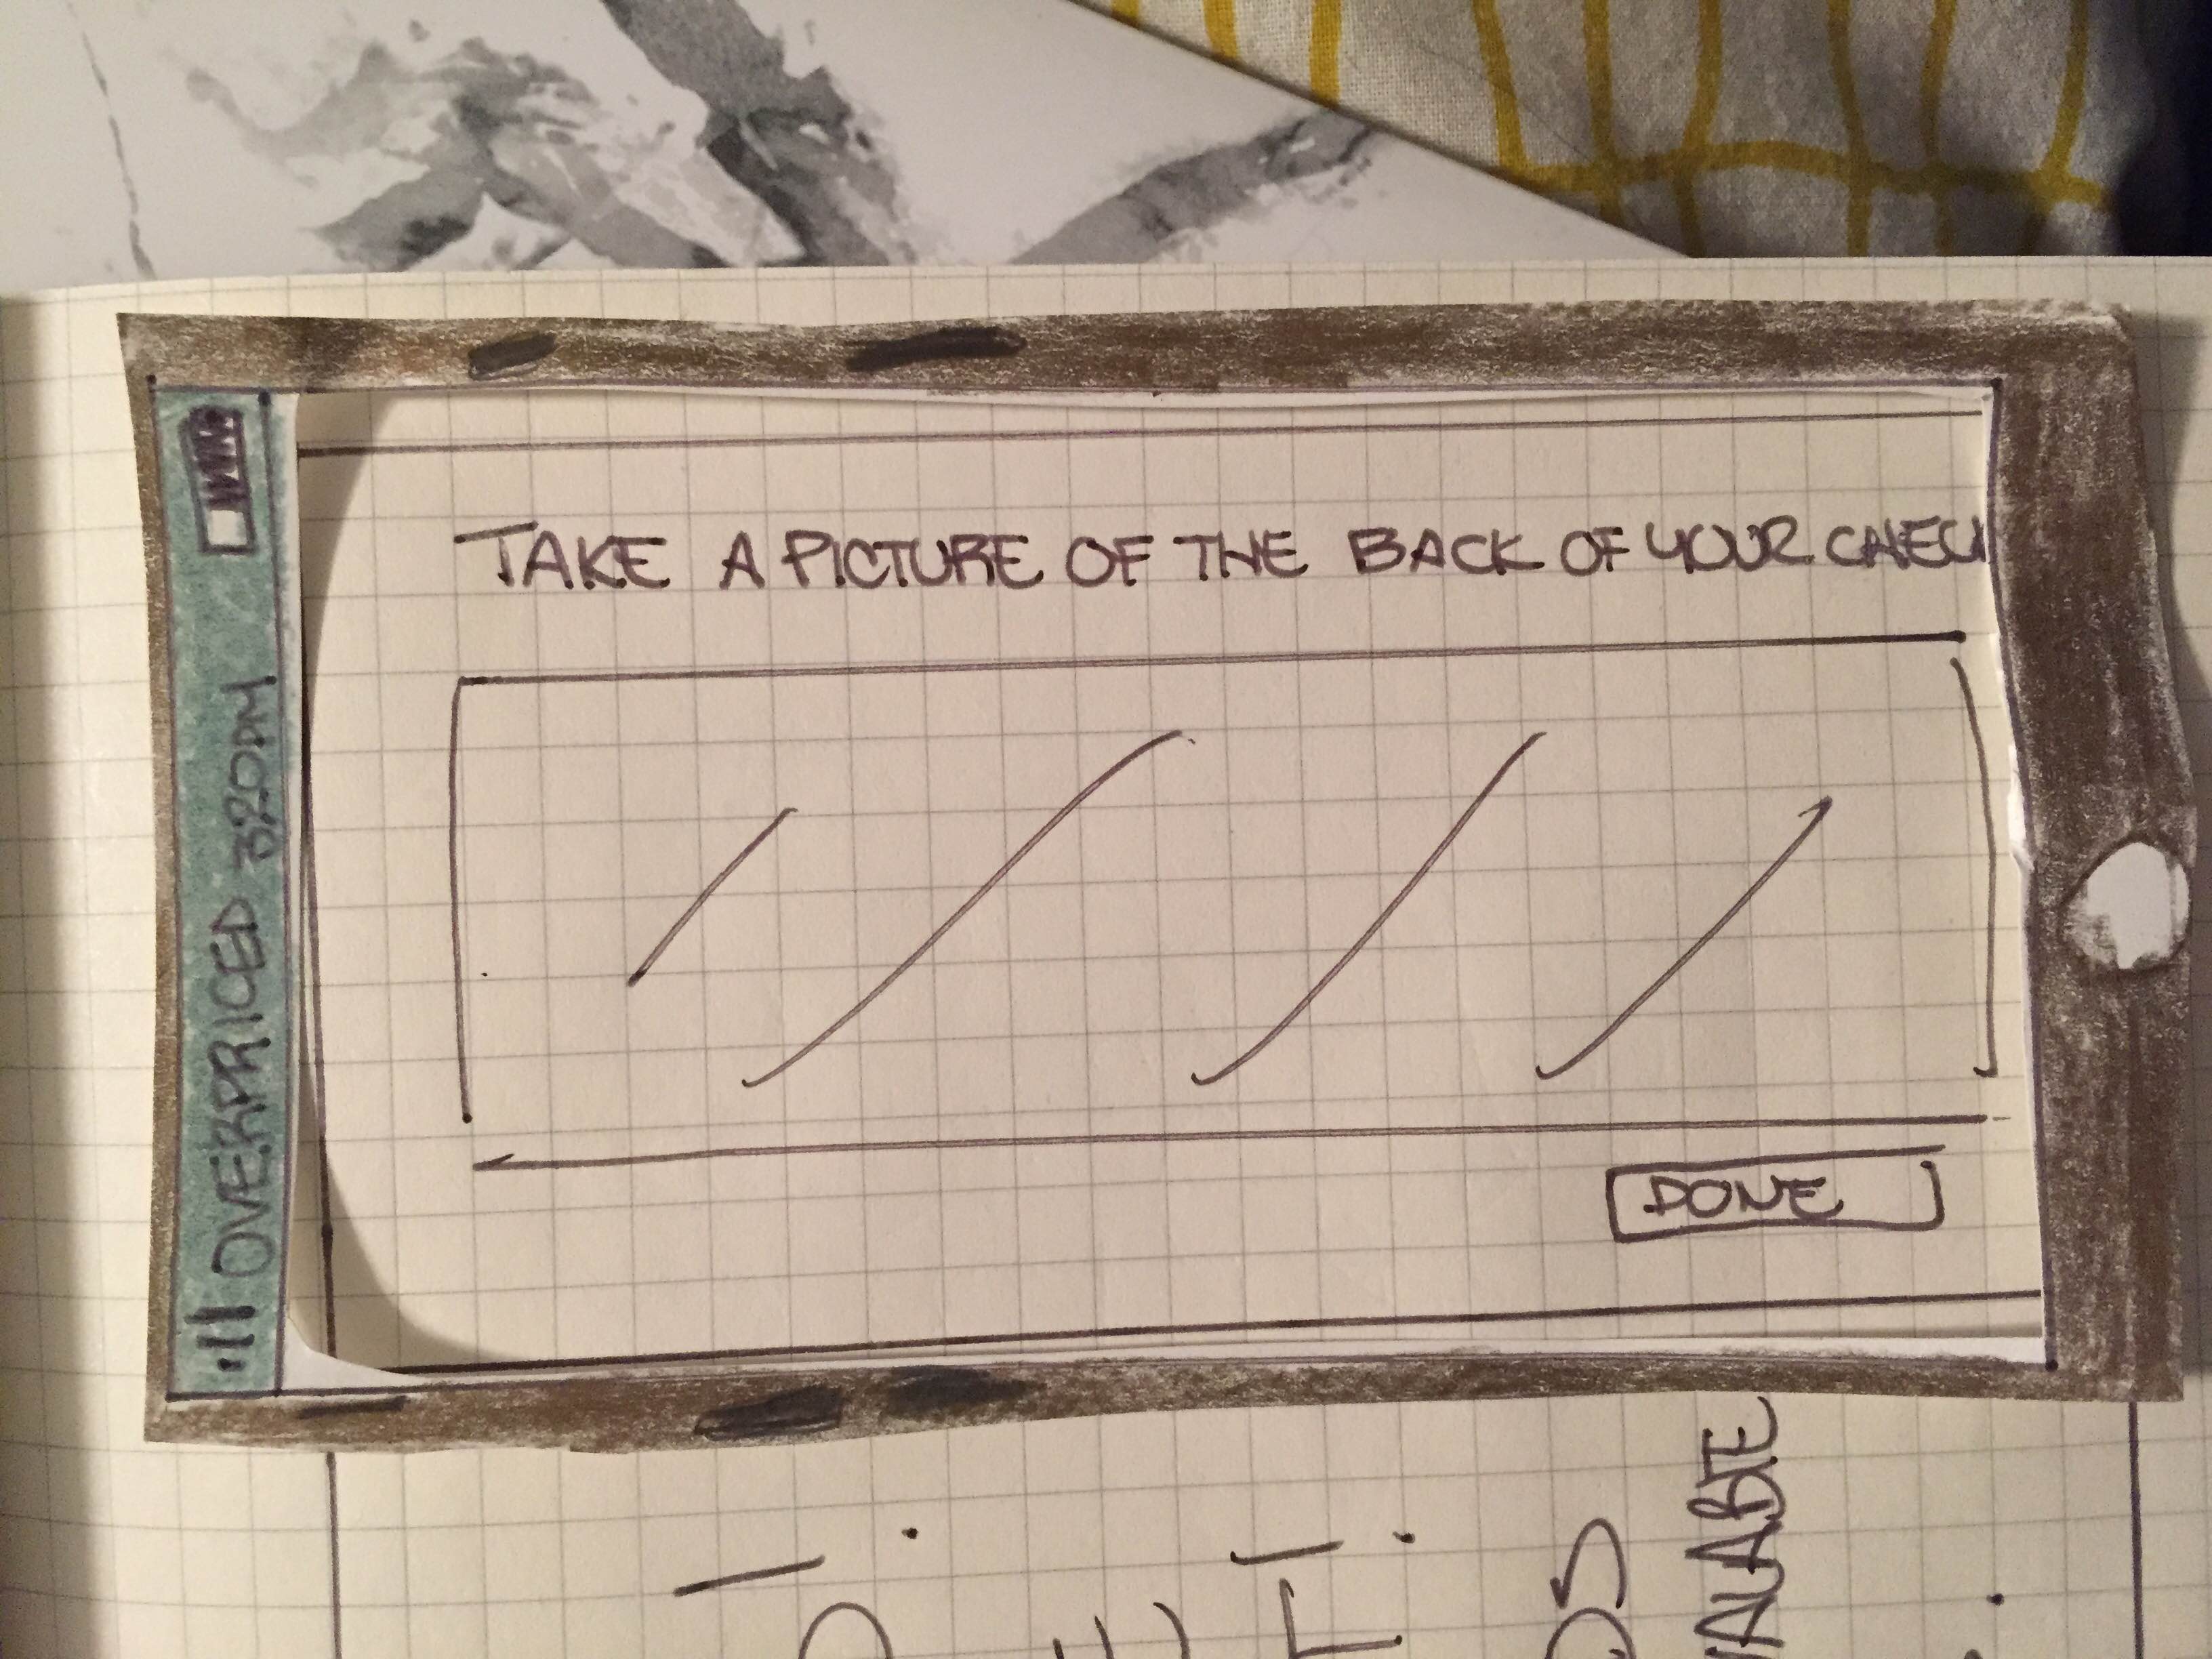 OVERPRICED 320PM
TAKE A PICTURE OF THE BACK OF YOUR CHECK
DONE